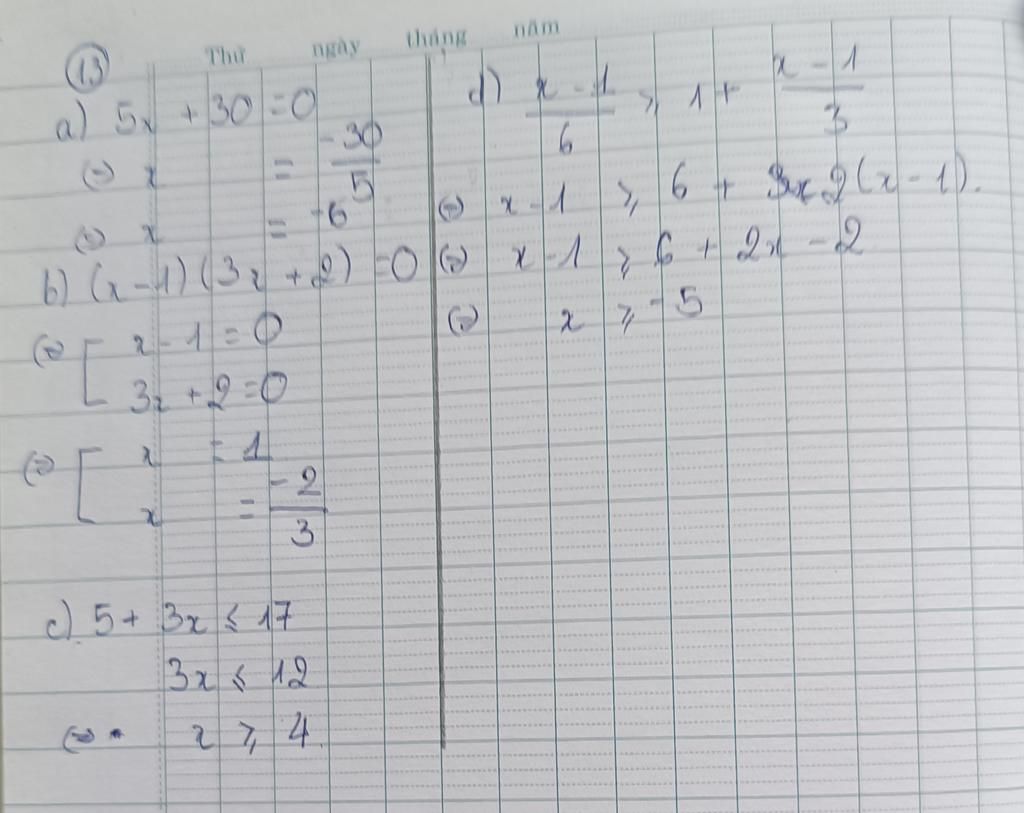 Thứ ngày tháng năm
13
a) 5x + 30 = 0
(=) x = -30/5
(=) x = -6
b) (x - 1)(3x + 2) = 0
(=) [ x - 1 = 0
3x + 2 = 0
(=) [ x = 1
x = -2/3
c) 5 + 3x ⩽ 17
3x ⩽ 12
(=) x ⩾ 4.
d) x - 1/6 ⩾ 1 + x - 1/3
(=) x - 1 ⩾ 6 + 2(x - 1).
(=) x - 1 ⩾ 6 + 2x - 2
(=) x ⩾ -5